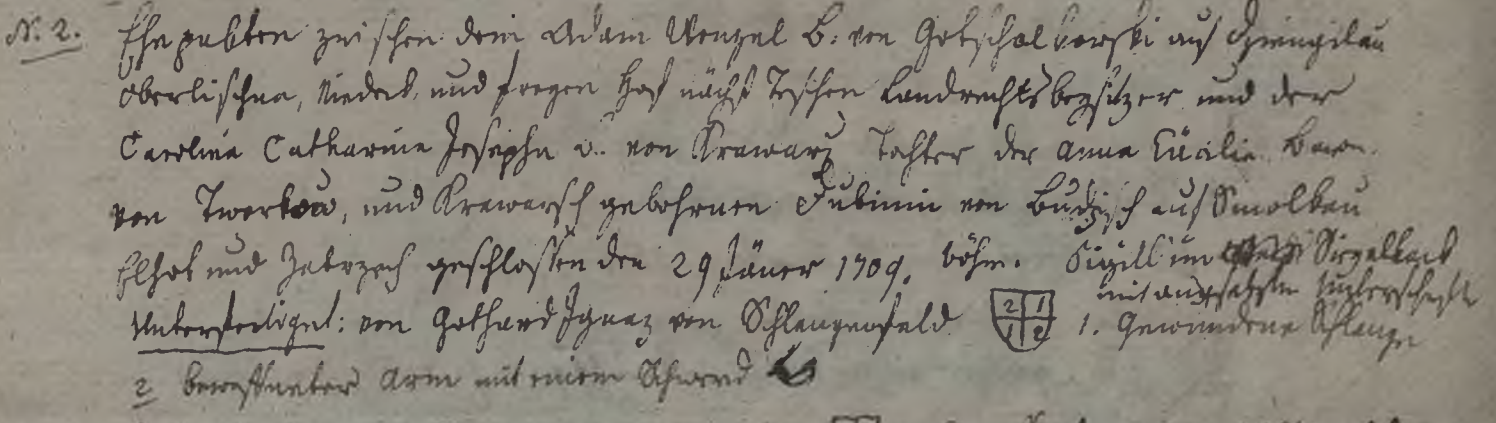 N. 2. Ehepakten zwischen dem Adam Wenzel B. von Gotschalkowski auf Dzingilau
Oberlischna, Niedek, und freyen Hof nächst Teschen Landrechtsbeysitzer und der
Carolina Catharina Josepha v. von Krawarz Tochter der Anna Cäcilia Baron.
von Tworkow, und Krawarsch gebohrnen Dubinin von Budzisch auf Smolkau
Elhot und Zabrzech geschlossen den 29 Jäner 1709. böhm. Sigill im Sigellack
mit Unterschrift
Unterfertiget: von Gothard Ignaz von Schlangenfeld 2 1 1 2 1. Gewundene Schlange
2 bewaffneter Arm mit einem Schwerd